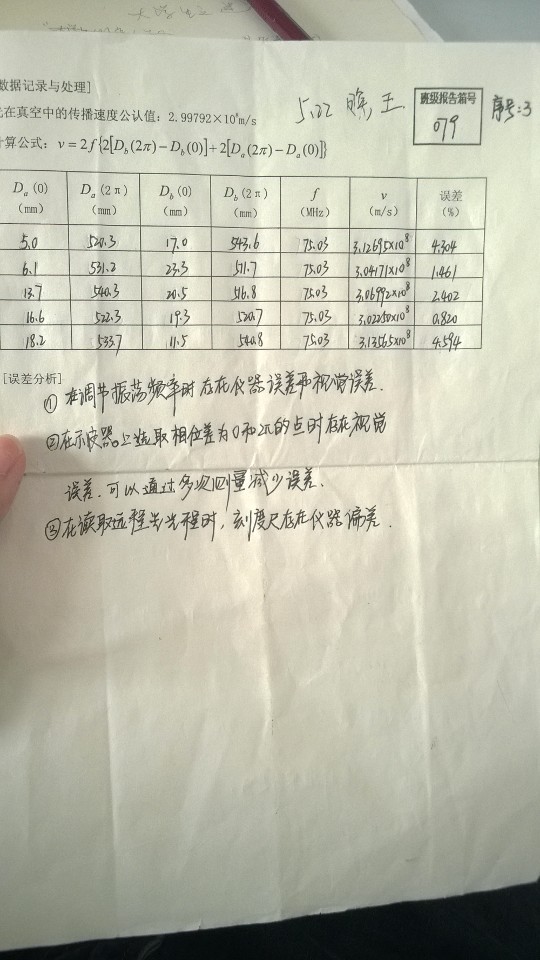 数据记录与处理]
光在真空中的传播速度公认值：2.99792×10⁸m/s
5.22
班级报告箱号
079
序号:3
计算公式：v=2f{2[D_b(2π)−D_b(0)]+2[D_a(2π)−D_a(0)]}
D_a(0) (mm) D_a(2π) (mm) D_b(0) (mm) D_b(2π) (mm) f (MHz) v (m/s) 误差 (%)
5.0 520.3 17.0 543.6 75.03 3.12695×10⁸ 4.304
6.1 531.2 23.3 511.7 75.03 3.04171×10⁸ 1.461
13.7 540.3 20.5 516.8 75.03 3.06992×10⁸ 2.402
16.6 522.3 19.3 520.7 75.03 3.02250×10⁸ 0.820
18.2 533.7 11.5 540.8 75.03 3.13565×10⁸ 4.594
[误差分析]
①在调节振荡频率时存在仪器误差和视觉误差.
②在示波器上选取相位差为0和2π的点时存在视觉
误差.可以通过多次测量减少误差.
③在读取远程光光程时,刻度尺存在仪器偏差.